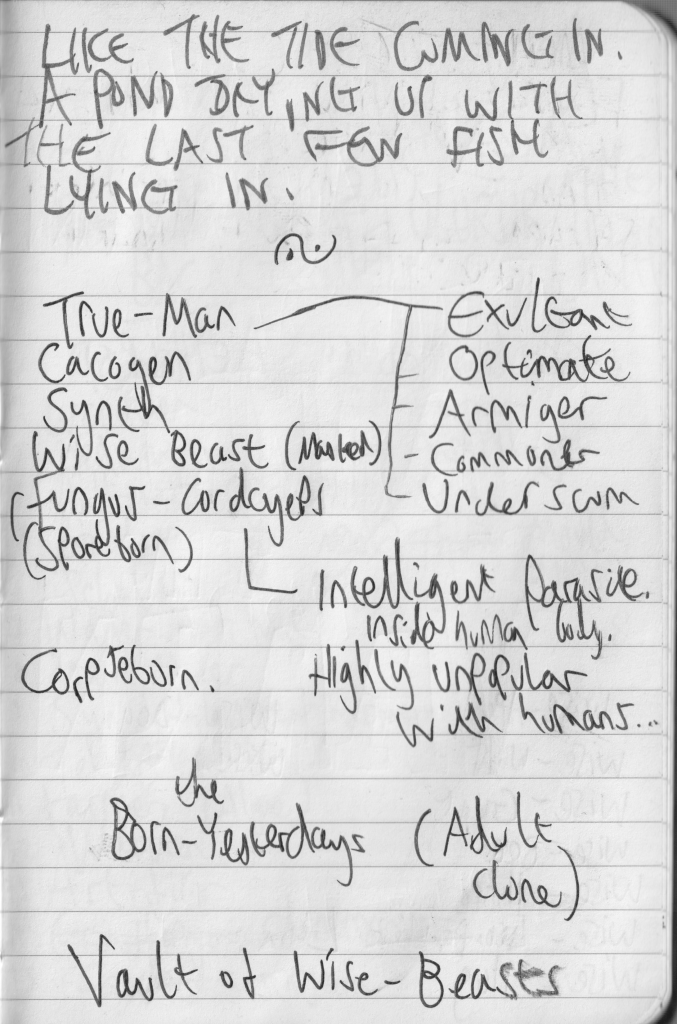 LIKE THE TIDE COMING IN.
A POND DRYING UP WITH
THE LAST FEW FISH
LYING IN.
True-Man
Cacogen
Synth
Wise Beast (Masked)
(Fungus-Cordcyeps
(Sporeborn)
Exultant
Optimate
Armiger
Commoner
Underscum
Intelligent Parasite.
Inside human body.
Highly unpopular
with humans...
Corpseborn.
the
Born-Yesterdays (Adult
clone)
Vault of Wise-Beasts